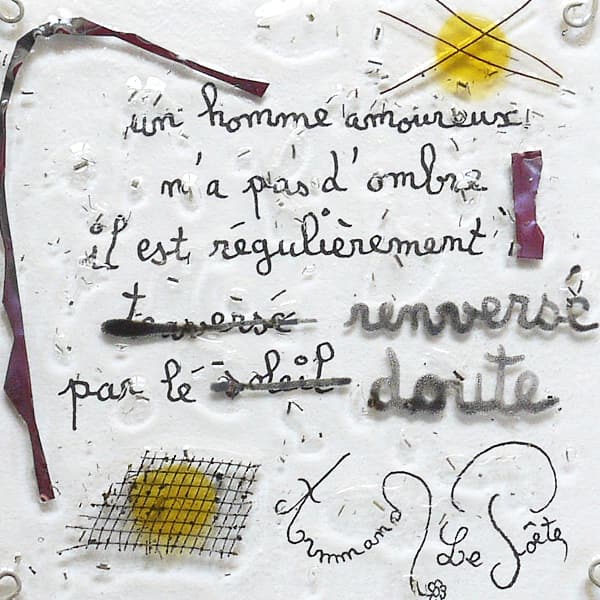 un homme amoureux
n'a pas d'ombre
il est régulièrement
traversé renversé
par le soleil doute
Armand Le Poête